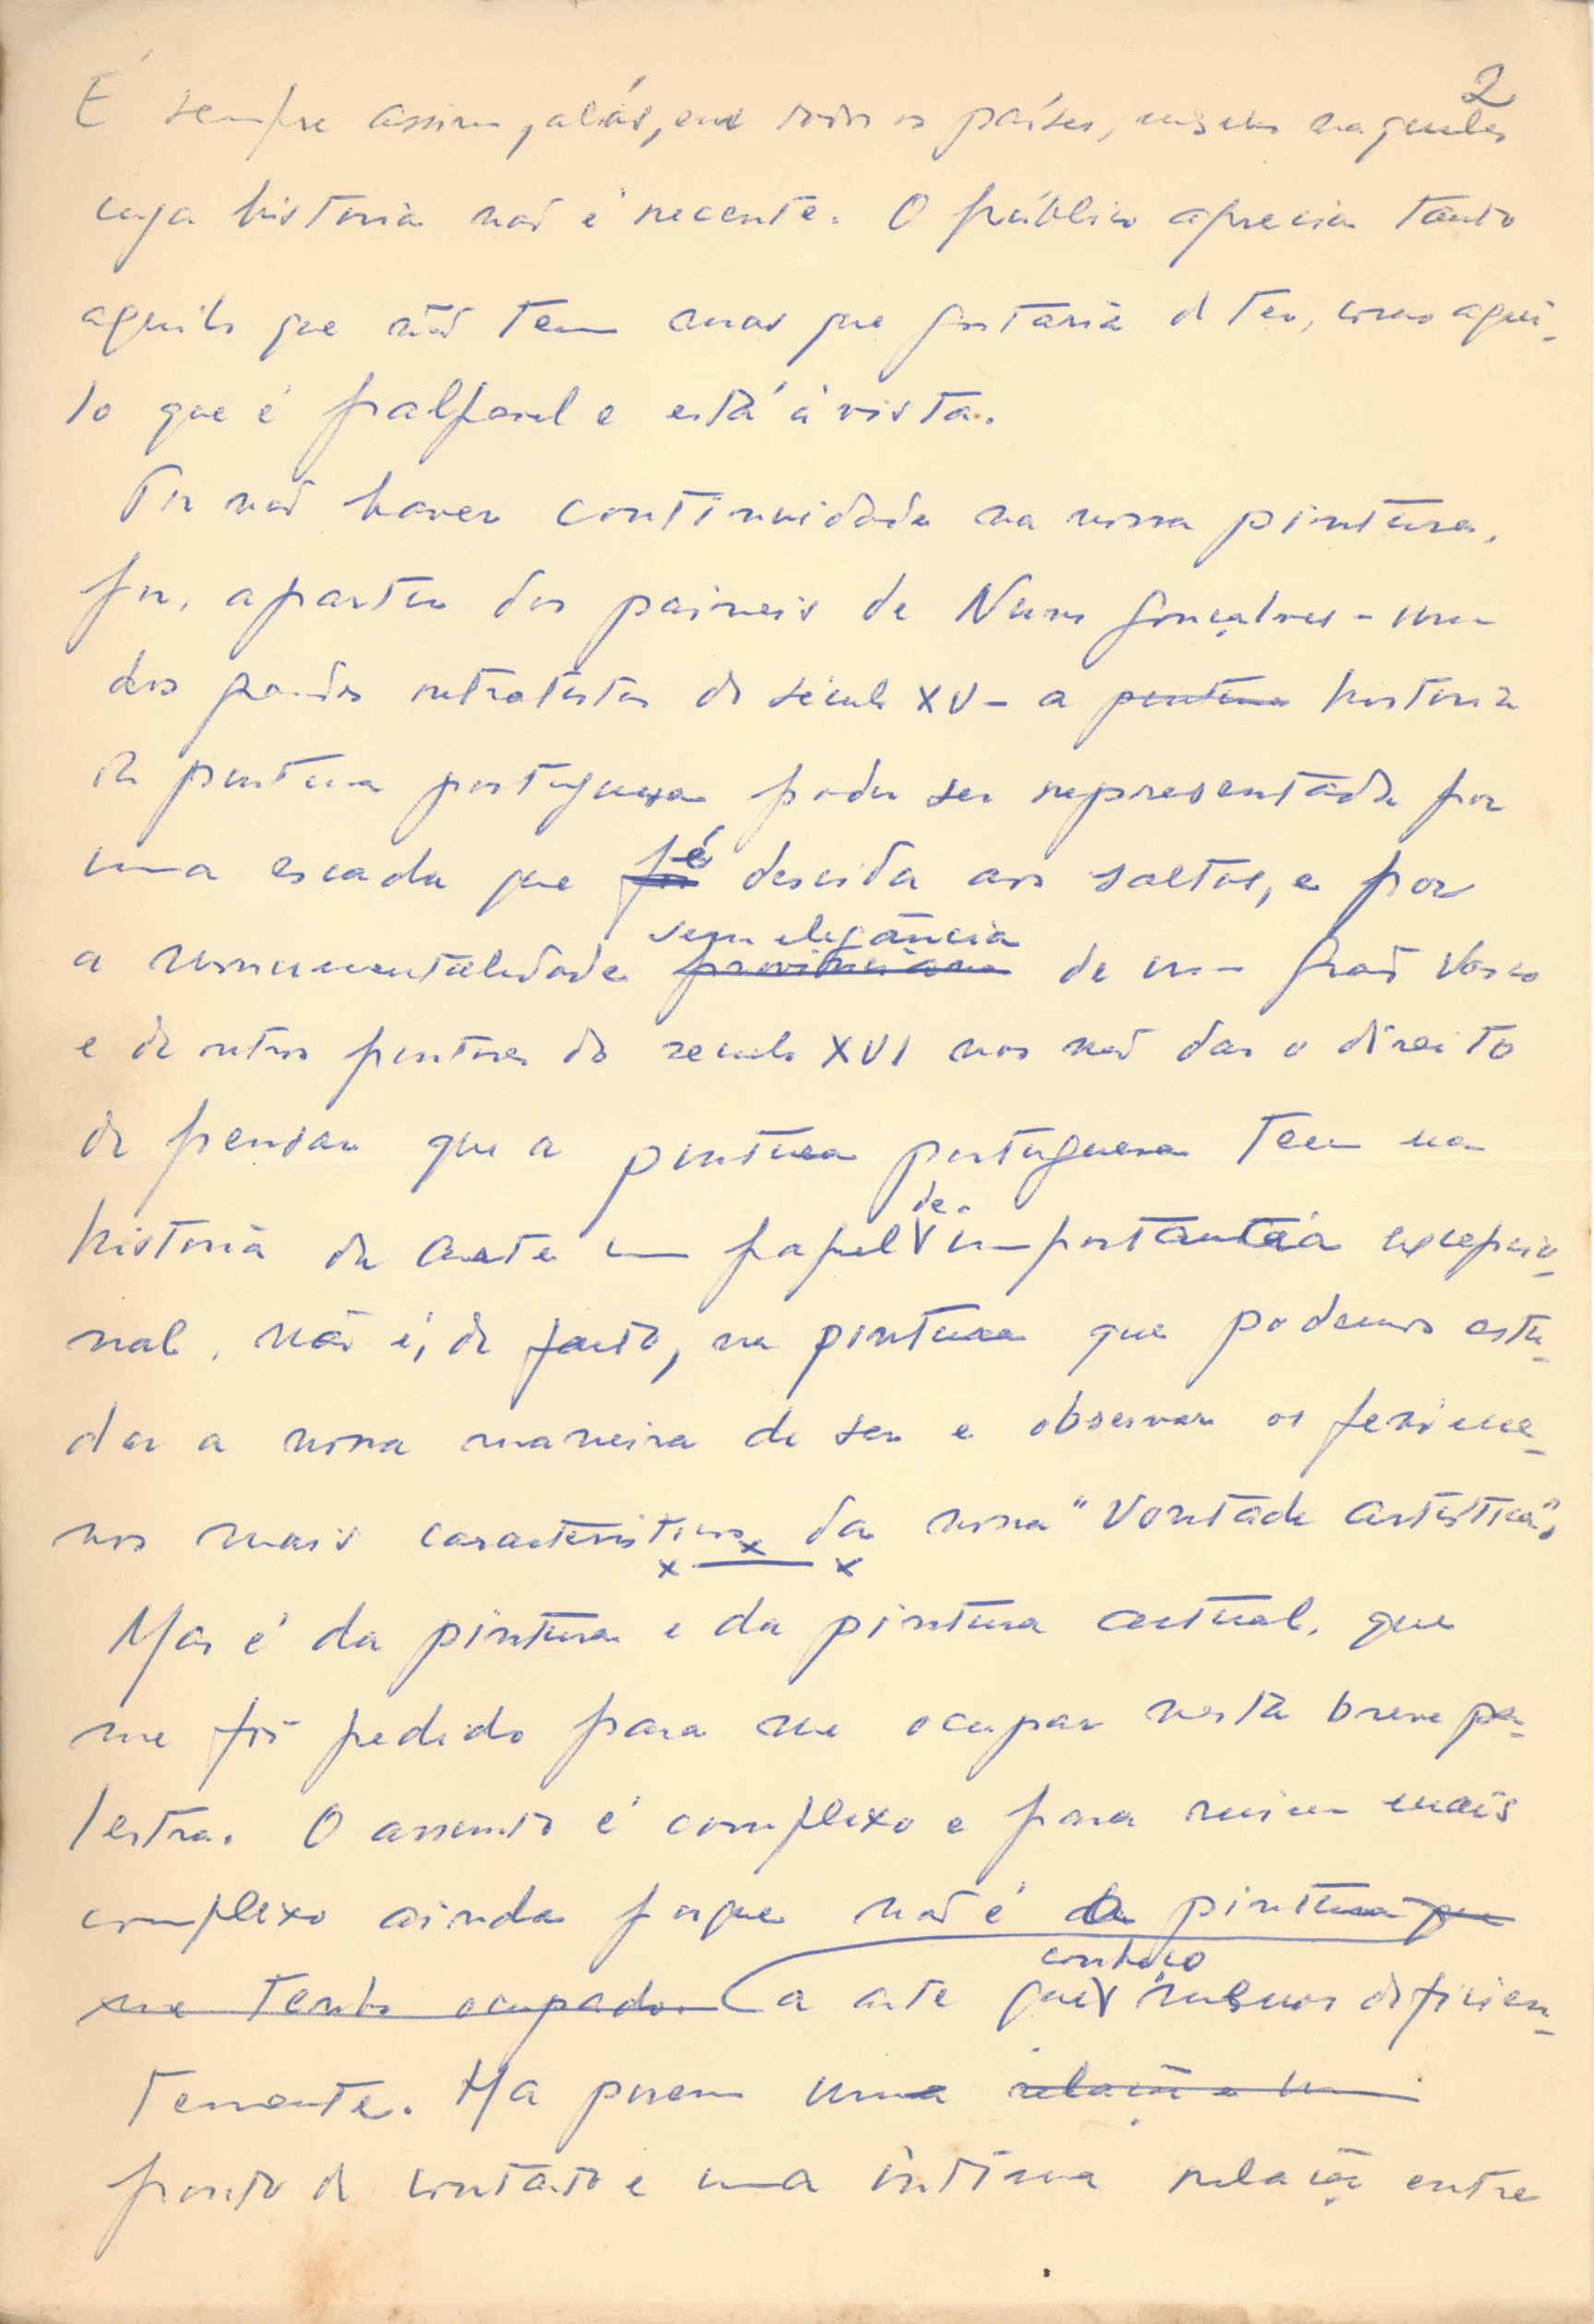 2
É sempre assim, aliás, em todos os países, mesmo naqueles
cuja historia não é recente. O público aprecia tanto
aquilo que não tem mas que gostaria de ter, como aqui-
lo que é palpavel e está á vista.
Por não haver continuidade na nossa pintura,
por, a partir dos paineis de Nuno Gonçalves - um
dos grandes retratistas do século XV - a pintura historia
da pintura portuguesa poder ser representada por
uma escada que foi é descida aos saltos, e por
a monumentalidade provinciana sem elegância de um Grão Vasco
e de outros pintores do seculo XVI nos não dar o direito
de pensar que a pintura portuguesa tem na
historia da arte um papel de importancia excepcio-
nal, não é, de facto, na pintura que podemos estu-
dar a nossa maneira de ser e observar os fenóme-
nos mais caracteristicos da nossa "Vontade artistica".
x x x
Mas é da pintura e da pintura actual, que
me foi pedido para me ocupar nesta breve pa-
lestra. O assunto é complexo e para mim mais
complexo ainda porque não é a pintura que
me tenho ocupado. a arte que conheço menos deficien-
temente. Ha porem uma relação e um
ponto de contacto e uma intima relação entre